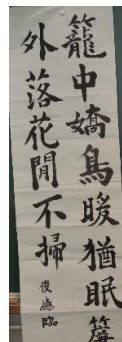 籠中嬌鳥暖猶眠簾
外落花閒不掃
俊德臨